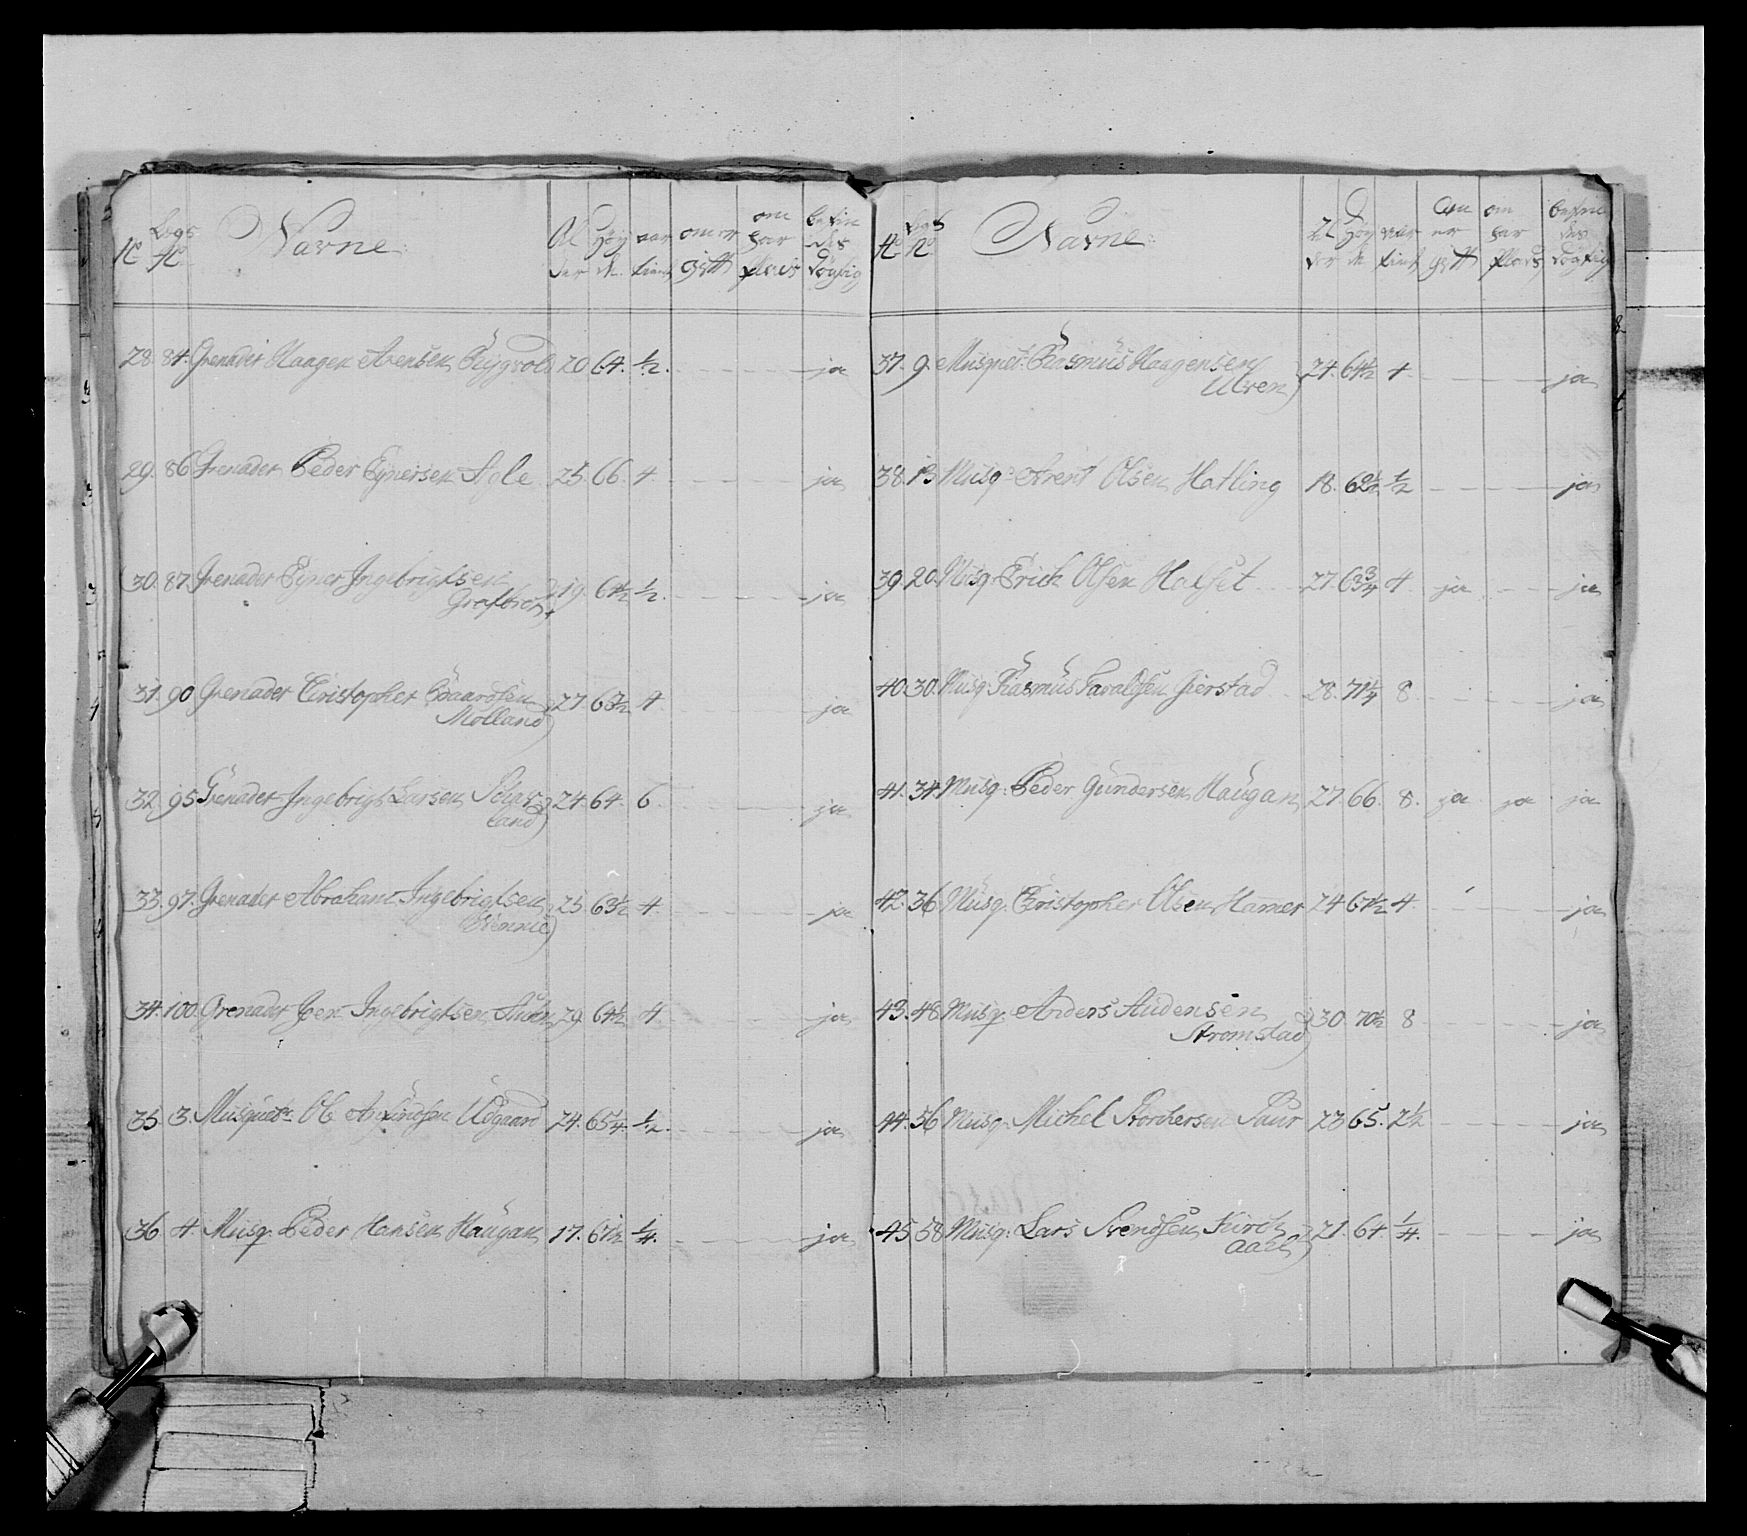 No Lægs No Navne: Al der Høy de aar tient om er gift om har plads befin des dögtig
28. 84. Grenader Haagen Arensen Rygvold 20 64. ½. ja
29. 86 Grenader Peder Eynersen Agle 25. 66. 4 ja
30. 87. Grenader Eyner Ingebrigtsen 19. 64½ ½. ja
31. 90 Grenader Christopher Baardsen 27. 63½ 4. ja
Molland)
32. 95 Grenader Ingebrigt Larsen 24. 64. 6. ja
land)
33. 97. Grenader Abraham Ingebrigtsen 25 63½ 4. ja
34. 100. Grenader Joen Ingebrigtsen 29. 64½ 4. ja
35. 3. Musquetr Ole Amundsen Udgaard 24. 65¼. ½. ja
36. 4. Musq. Peder Hansen Haugan 17. 61½ ¼. ja
No Lægs No Navne: Al der Høy de aar tient Om er gift om har plads befin des dögtig
37. 9. Musquet: Rasmus Haagensen 24. 64½ 4. ja
Ulven)
38. 13 Musq: Arent Olsen Hatling 18. 62½ ½ ja
39. 20. Musq: Erich Olsen Halset 27. 63¾ 4 ja ja
40. 30. Musq: Rasmus Haraldsen Gierstad 28. 71¼ 8 ja
41. 34. Musq: Peder Gundersen Haugan 27. 66. 8. ja ja ja
42. 36 Musq. Christopher Olsen Hamer 24 67½ 4. ja
43. 48 Musq. Anders Audensen 30. 70½ 8 ja
Strømstad)
44. 56 Musq. Michel Storchersen Saur 23 65. 2½ ja
45 58 Musq: Lars Svendsen Kirch 21. 64 ¼. ja